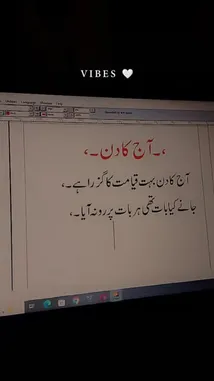 VIBES 🤍
،۔آج کا دن۔،
آج کا دن بہت قیامت کا گزرا ہے۔،
جانے کیا بات تھی ہر بات پر رونہ آیا۔،